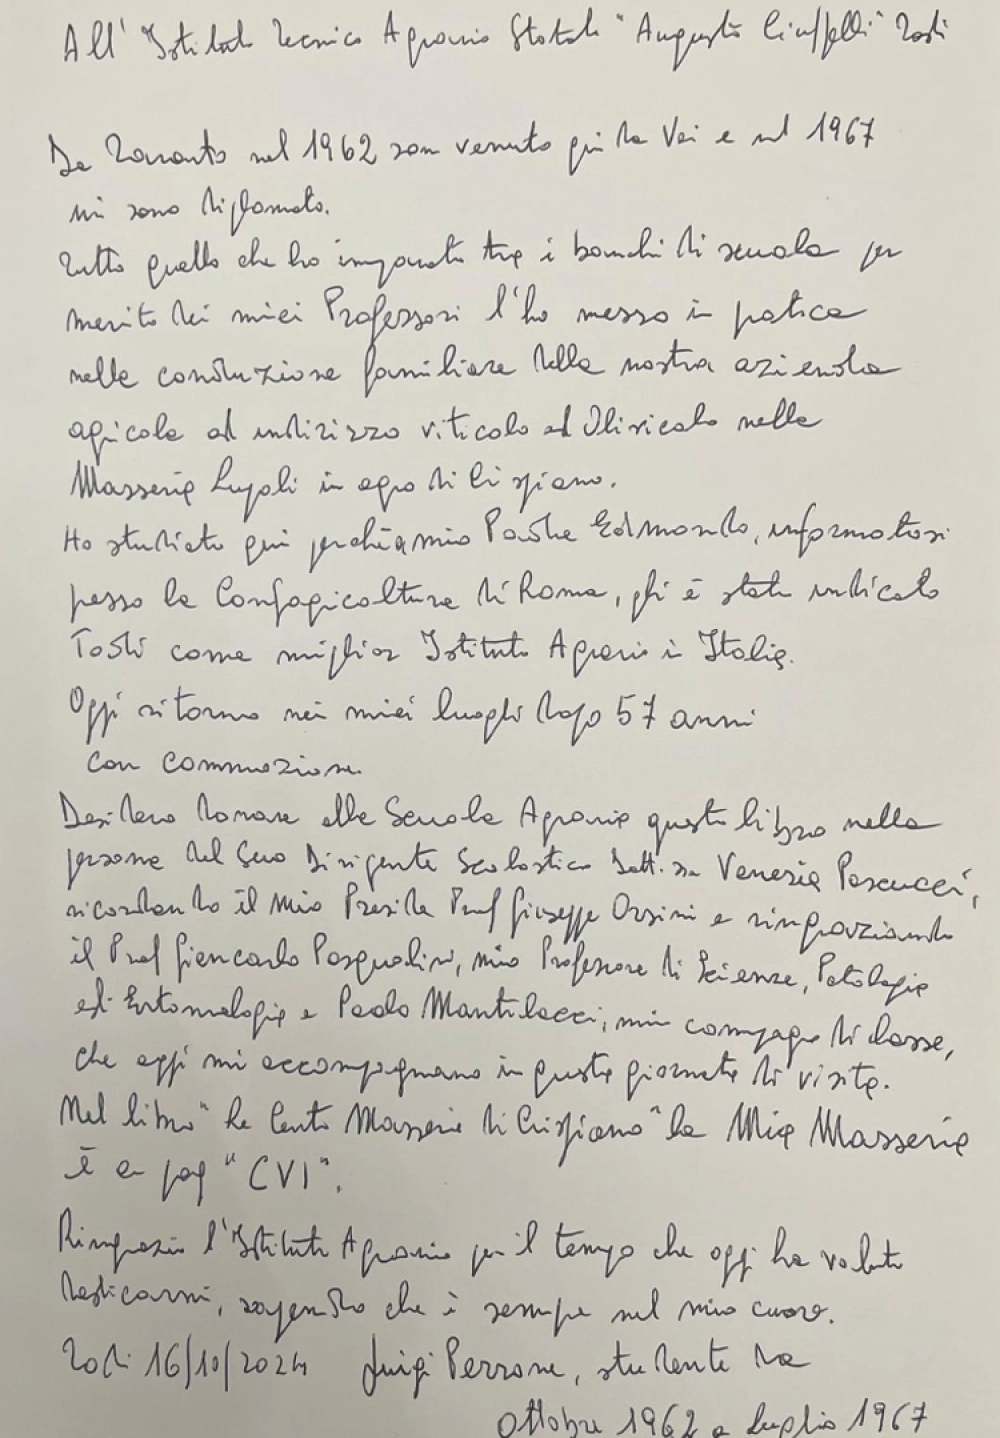 All' Istituto Tecnico Agrario Statale "Augusto Ciuffelli" Todi
Da Taranto nel 1962 son venuto qui da Voi e nel 1967
mi sono diplomato.
Tutto quello che ho imparato tra i banchi di scuola per
merito dei miei Professori l'ho messo in pratica
nella conduzione familiare della nostra azienda
agricola ad indirizzo viticolo ed Olivicolo nella
Masseria Lupoli in agro di Crispiano.
Ho studiato qui perchè a mio Padre Edmondo, informatosi
presso la Confagricoltura di Roma, gli è stato indicato
Todi come miglior Istituto Agrario in Italia.
Oggi ritorno nei miei luoghi dopo 57 anni
con commozione.
Desidero donare alla Scuola Agraria questo libro nella
persona del Suo Dirigente Scolastico Dott.ssa Venusia Pascucci,
ricordando il mio Preside Prof Giuseppe Orsini e ringraziando
il Prof Giancarlo Pasqualini, mio Professore di Scienze, Patologia
ed Entomologia e Paolo Mantilacci, mio compagno di classe,
che oggi mi accompagnano in questa giornata di visita.
Nel libro "Le Cento Masserie di Crispiano" la Mia Masseria
è a pag "CVI".
Ringrazio l'Istituto Agrario per il tempo che oggi ha voluto
dedicarmi, sapendo che è sempre nel mio cuore.
Todi 16/10/2024 Luigi Perrone, studente da
Ottobre 1962 a Luglio 1967